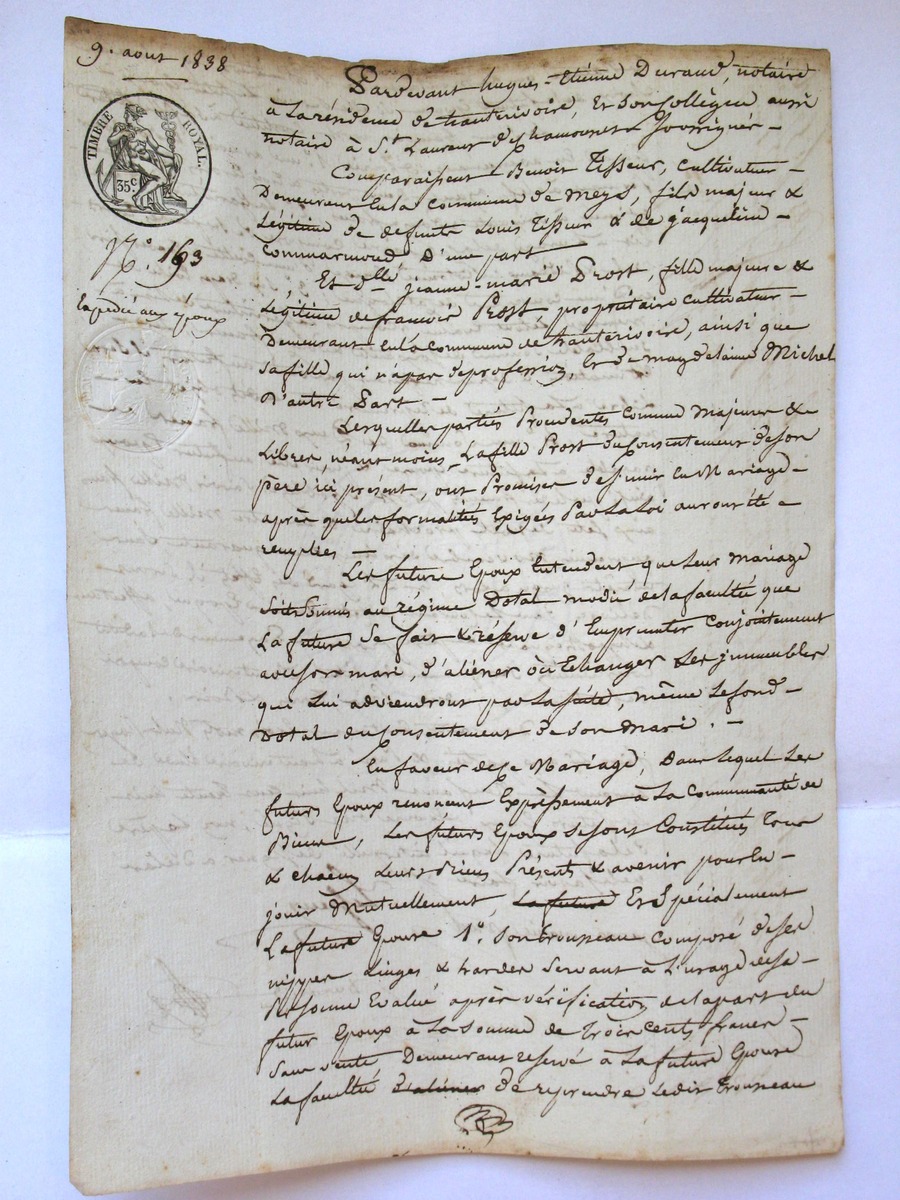 9. aout 1838
TIMBRE ROYAL.
35c
N.° 163
Expedié aux époux
Pardevant hugues-Etienne Durand, notaire
à La résidence de hauterivoire, Et Son Collègue aussi
notaire à St. Laurent de chamousset Soussignés –
Comparaissent Benoit Tisseur, cultivateur –
Demeurant En la commune de Meys, fils majeur &
Légitime de defunt Louis Tisseur & de jacqueline –
Commarmond D'une part
Et dlle jeanne-marie Prost, fille majeure &
Légitime de francois Prost, propriétaire cultivateur –
Demeurant En la commune de hauterivoire, ainsi que
sa fille qui n'a pas de profession, Et de magdelaine Michel
D'autre Part –
Lesquelles parties Procedentes Comme Majeures &
Libres, néant moins La fille Prost du Consentement de son
père ici présent, ont Promises de s'unir En Mariage –
après que les formalités Exigées Par La Loi auront été
remplies –
Les futurs Epoux Entendent que Leur Mariage
Soit Soumis au régime Dotal modié de la faculté que
La future Se fait & réserve d'Emprunter Conjointement
avec Son mari, d'aliéner ou Echanger Les jmmeubles
qui Lui adviendront par La suite, même Le fond –
Dotal du Consentement de Son Mari. –
En faveur de Ce Mariage, Dans Lequel Les
futurs Epoux renoncent Expressement à La Communauté de
Biens, Les futurs Epoux se sont Constitués Tous
& chacun Leurs Biens Présents & avenir pour En –
jouir Mutuellement, La future Et Spécialement
La future Epouse 1.° Son trousseau composé de ses
nippes Linges & hardes Servant à L'usage de sa –
Personne Evalué après vérification de la part du
futur Epoux à La Somme de Trois Cents francs –
Sans vente Demeurant reservé à La future Epouse
La faculté d'aliéner de reprendre Ledit Trousseau